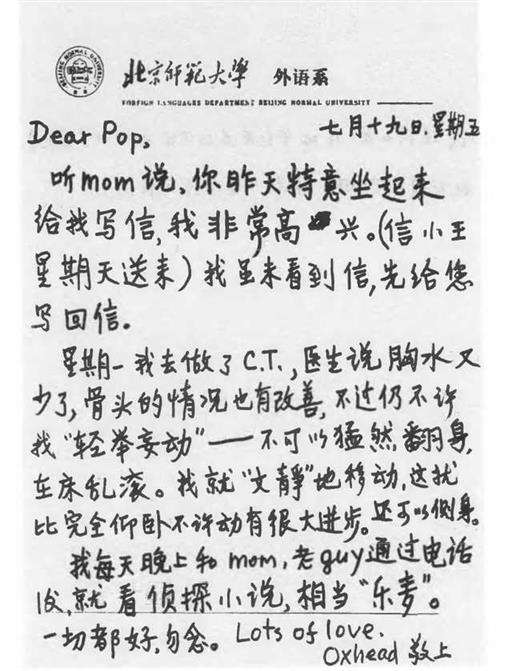 北京师范大学 外语系
FOREIGN LANGUAGES DEPARTMENT BEIJING NORMAL UNIVERSITY
七月十九日.星期五
Dear Pop,
听mom说,你昨天特意坐起来
给我写信,我非常高兴。(信小王
星期天送来)我虽未看到信,先给您
写回信。
星期一我去做了C.T.,医生说胸水又
少了,骨头的情况也有改善,不过仍不许
我“轻举妄动”——不可以猛然翻身,
在床乱滚。我就“文静”地移动,这就
比完全仰卧不许动有很大进步。还可以侧身。
我每天晚上和mom,老guy通过电话
后,就看侦探小说,相当“乐考”。
一切都好,勿念。Lots of love.
Oxhead 敬上